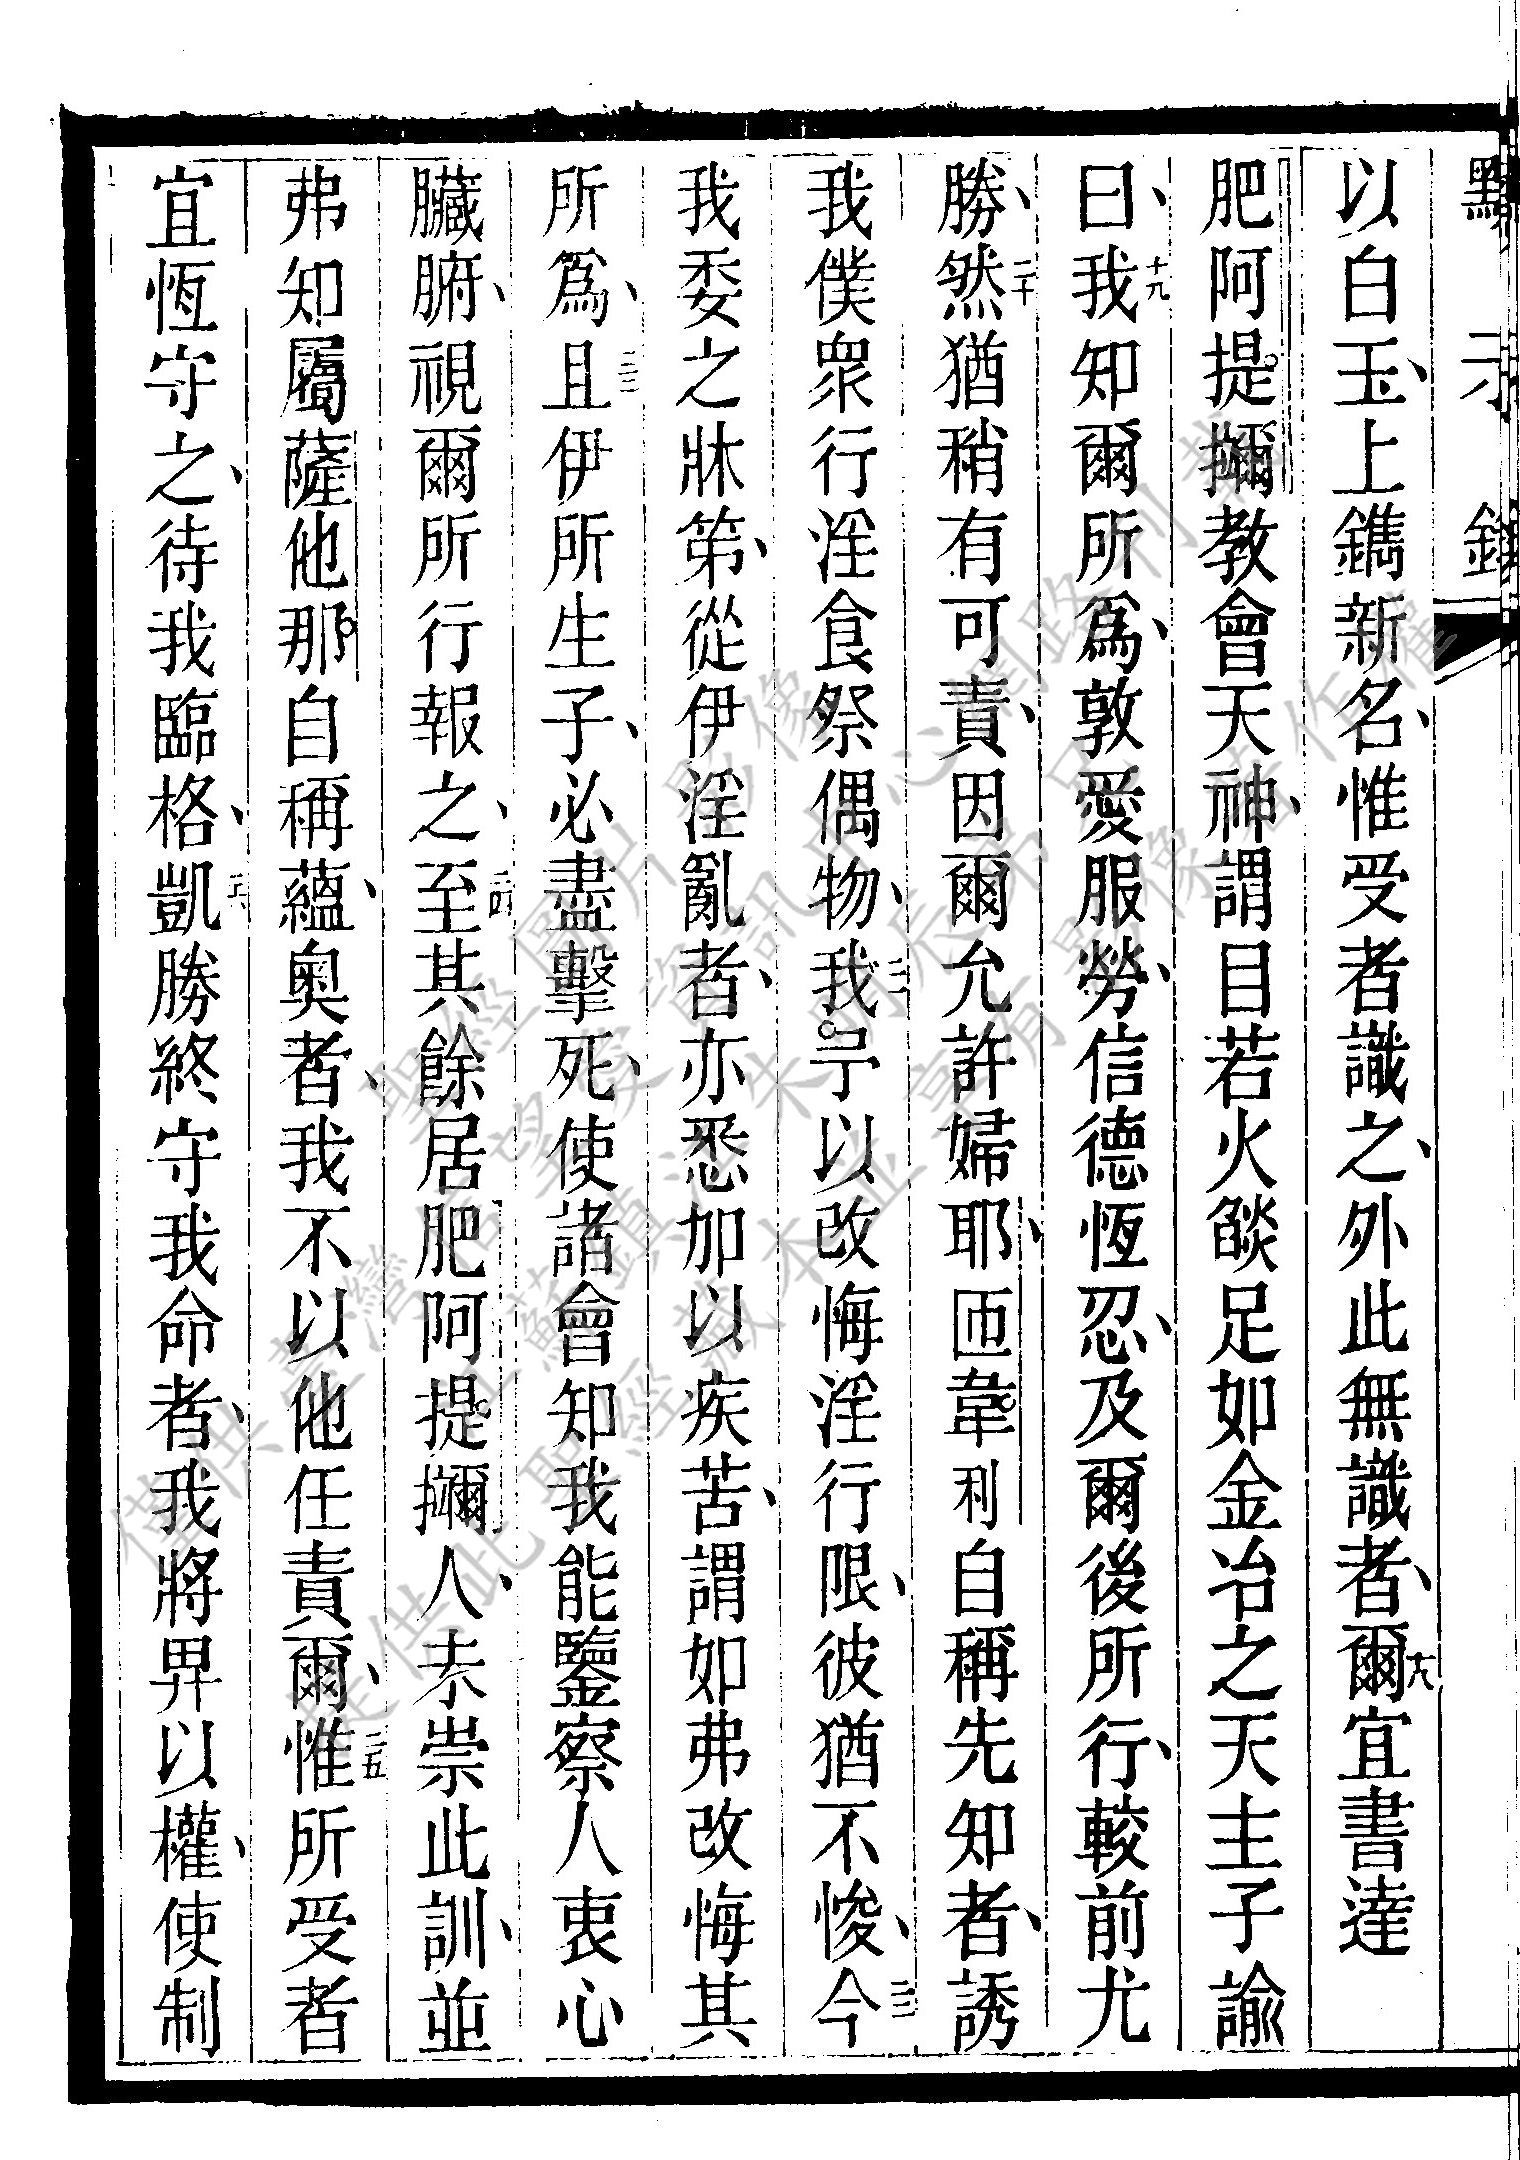 默示錄
以白玉、上鐫新名、惟受者識之、外此無識者、十八爾宜書達
肥阿提擟教會天神、謂目若火燄足如金冶之天主子諭
曰、十九我知爾所爲、敦愛服勞、信德恆忍、及爾後所行、較前尤
勝、二十然猶稍有可責、因爾允許婦耶、匝韋利自稱先知者、誘
我僕衆行淫食祭偶物、二一我予以改悔淫行限、彼猶不悛、二二今
我委之牀第、從伊淫亂者、亦悉加以疾苦、謂如弗改悔其
所爲、二三且伊所生子、必盡擊死、使諸會知我能鑒察人衷心
臟腑、視爾所行報之、二四至其餘居肥阿提擟人、未崇此訓、並
弗知屬薩他那自稱蘊、奧者、我不以他任責爾、二五惟所受者
宜恆守之、待我臨格、二六凱勝終守我命者、我將畀以權、使制